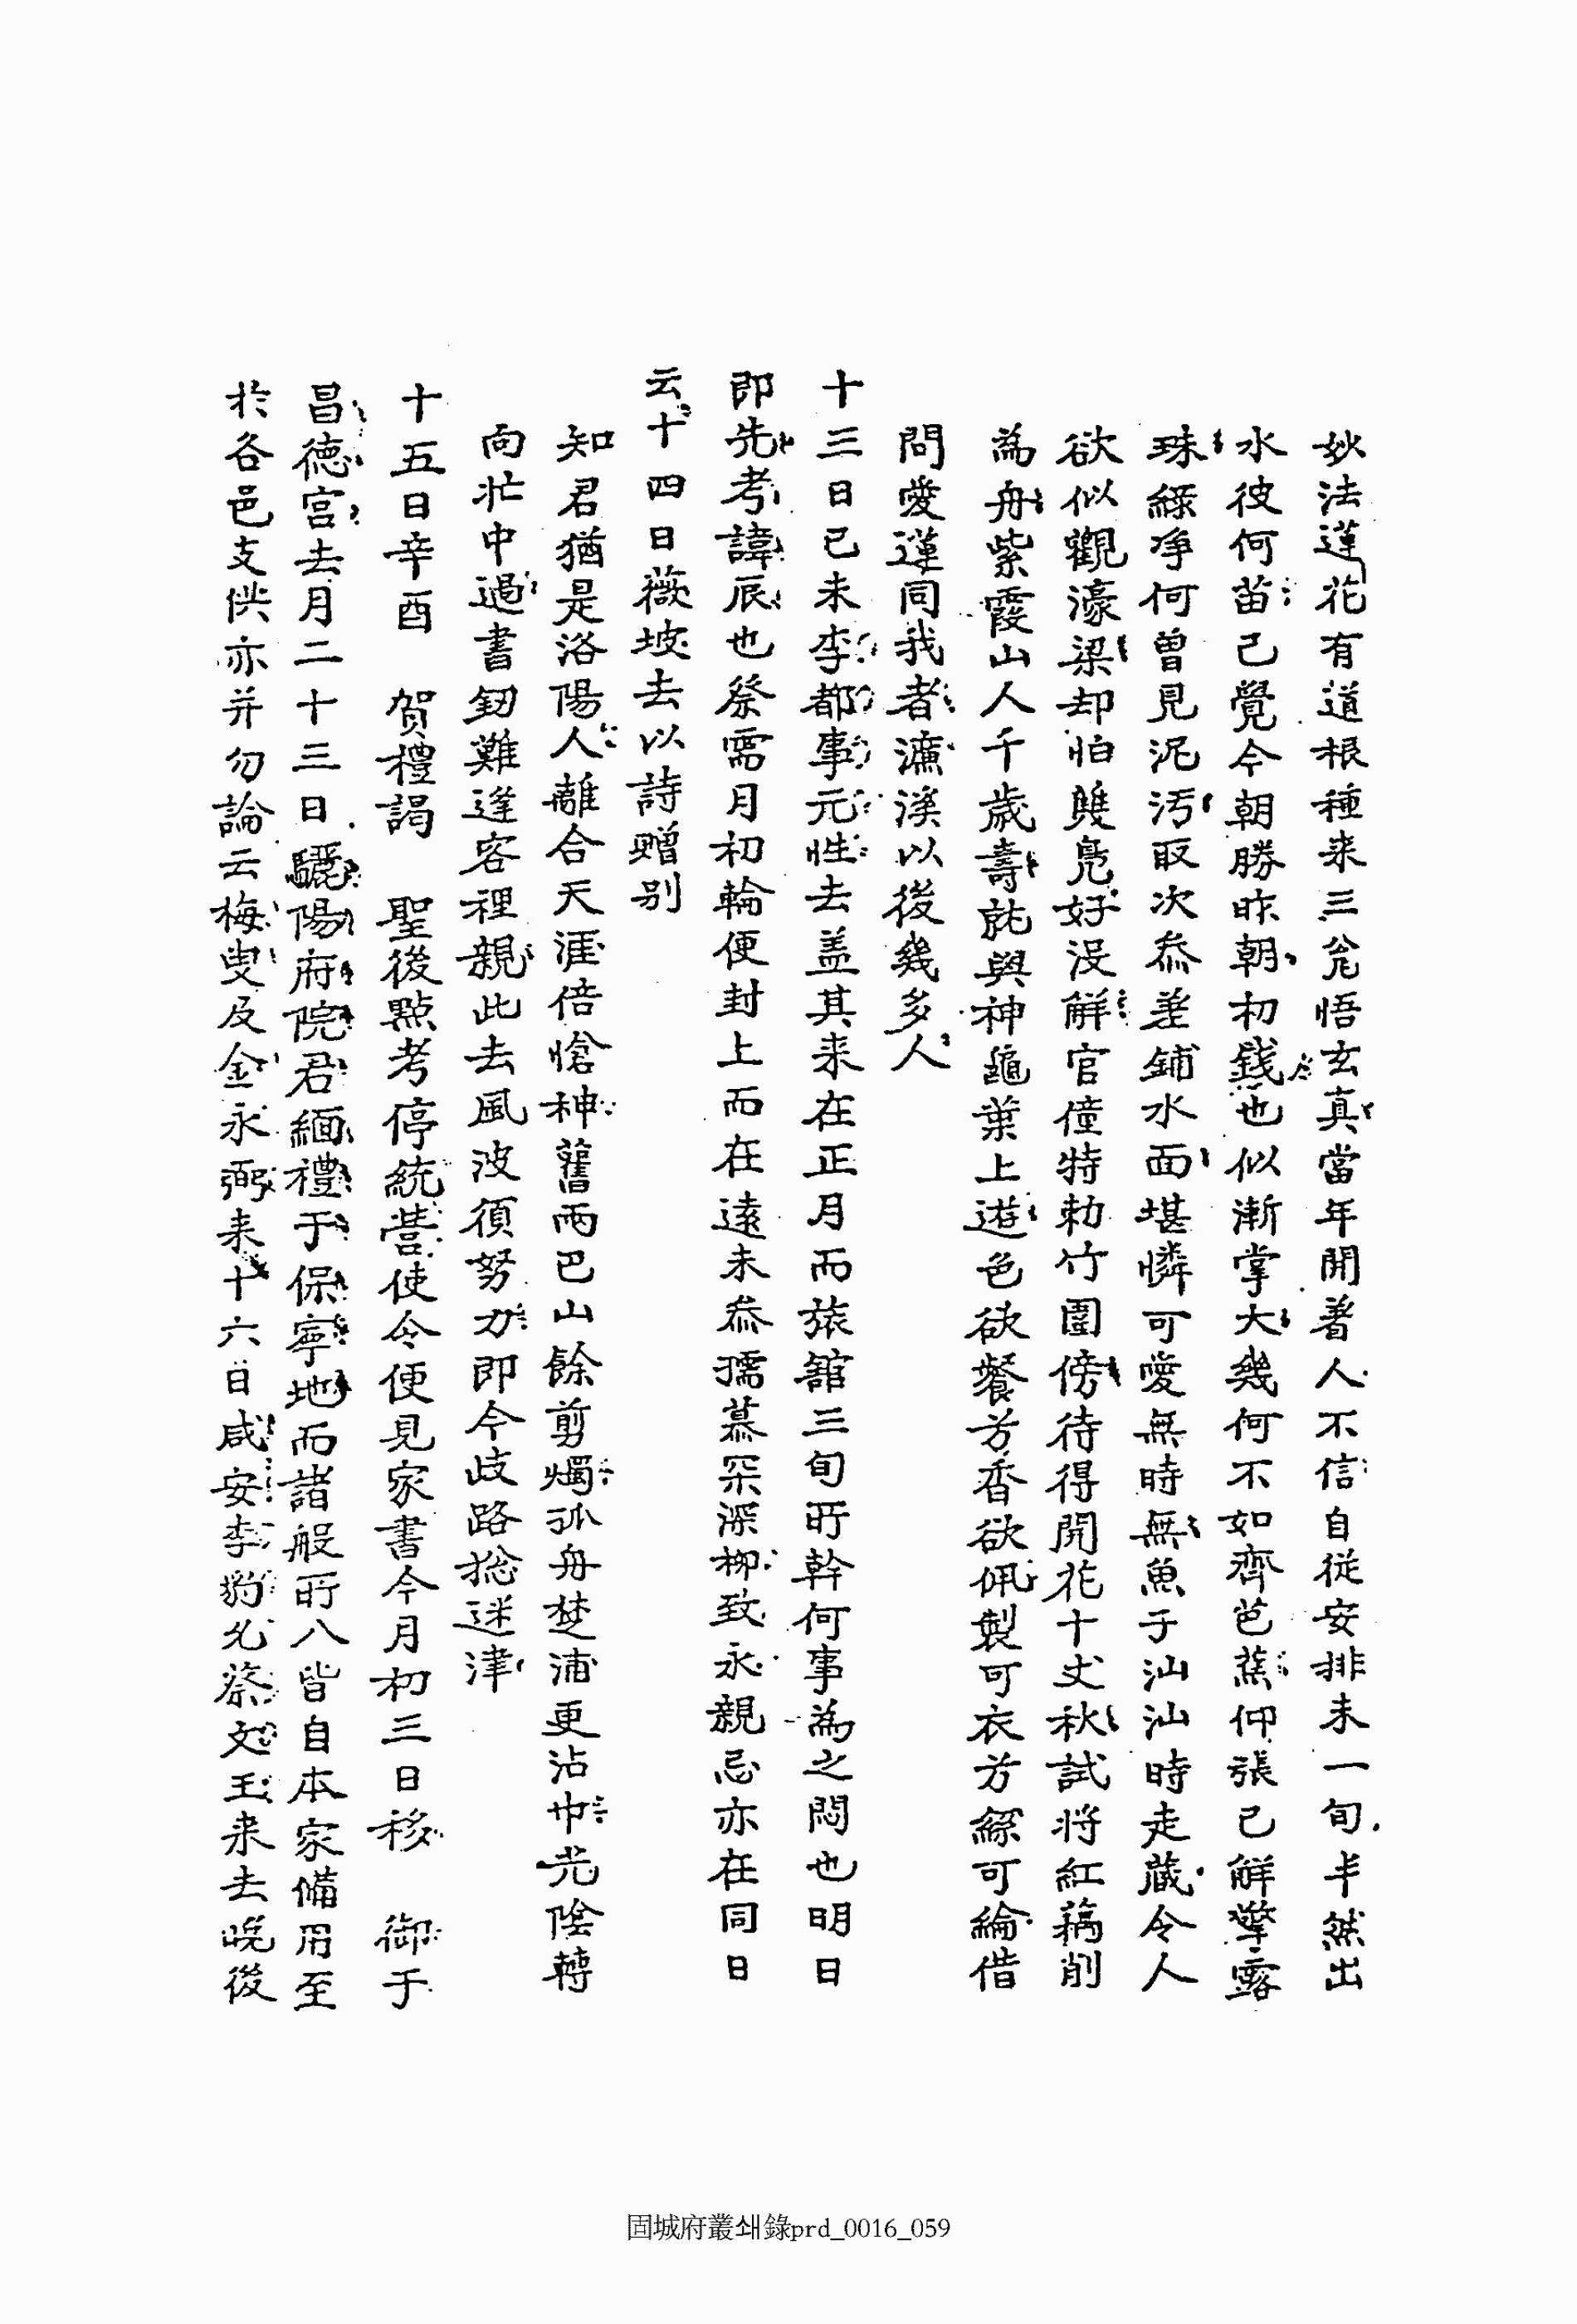 妙法蓮花有道根種来三瓮悟玄真當年開著人不信自従安排未一旬半然出
水彼何苗已覺今朝勝昨朝初錢也似漸掌大幾何不如齊芭蕉仰張已解擎露
珠綠净何曽見泥汚取次叅差鋪水面堪憐可愛無時無魚子汕汕時走蔵令人
欲似觀濠梁却怕雙鳧好没解官僮特勅竹圍傍待得開花十丈秋試将紅藕削
為舟紫霞山人千歳壽䏻與神龜葉上遊色欲餐芳香欲佩製可衣芳綠可綸借
問愛蓮同我者濂溪以後幾多人
十三日己未李都事元性去盖其来在正月而旅舘三旬所幹何事為之悶也明日
即先考諱辰也祭需月初輪便封上而在遠未叅孺慕罙深柳致永親忌亦在同日
云十四日薇坡去以詩贈别
知君猶是洛陽人離合天涯倍愴神舊雨巴山餘剪燭孤舟楚浦更沾巾光陰轉
向忙中過書釰難逢客裡親此去風波湏努力即今歧路捴迷津
十五日辛酉 贺禮謁 聖後點考停統営使令便見家書今月初三日移 御于
昌徳宮去月二十三日驪陽府院君緬禮于保寧地而諸般所入皆自本家備用至
扵各邑支供亦并勿論云梅叟及金永弼来十六日咸安李豹允蔡文玉来去晩後
固城府叢쇄錄prd_0016_059